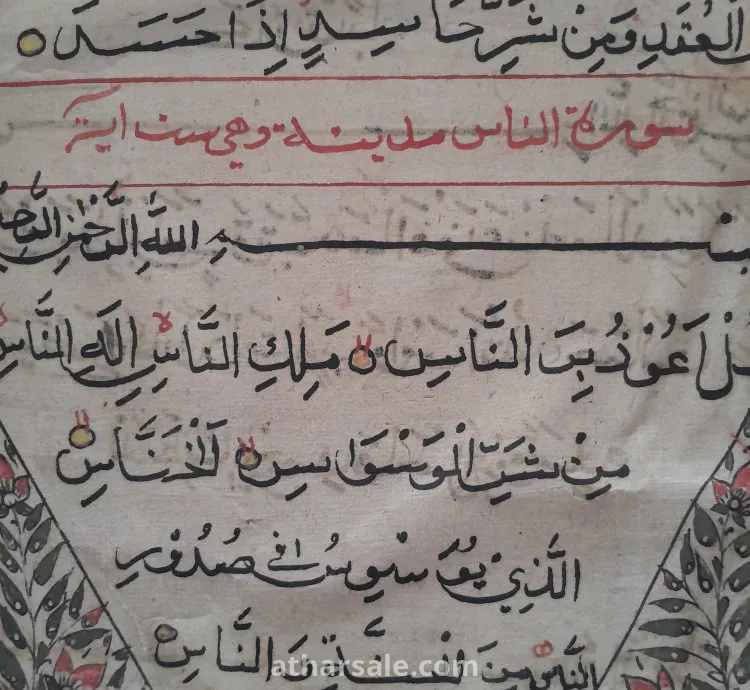 العُقَدِ وَمِنْ شَرِّ حَاسِدٍ إِذَا حَسَدَ
سورة الناس مدينة وهي ست اية
بسم اللهِ الرَّحْمٰنِ الرَّحِ
قُلْ اَعُوْذُ بِرَبِّ النَّاسِ مَلِكِ النَّاسِ اِلٰهِ النَّاسِ
مِنْ شَرِّ الْوَسْوَاسِ الْخَنَّاسِ
الَّذِيْ يُوَسْوِسُ فِيْ صُدُوْرِ
النَّاسِ مِنَ الْجِنَّةِ وَ النَّاسِ
atharsale.com